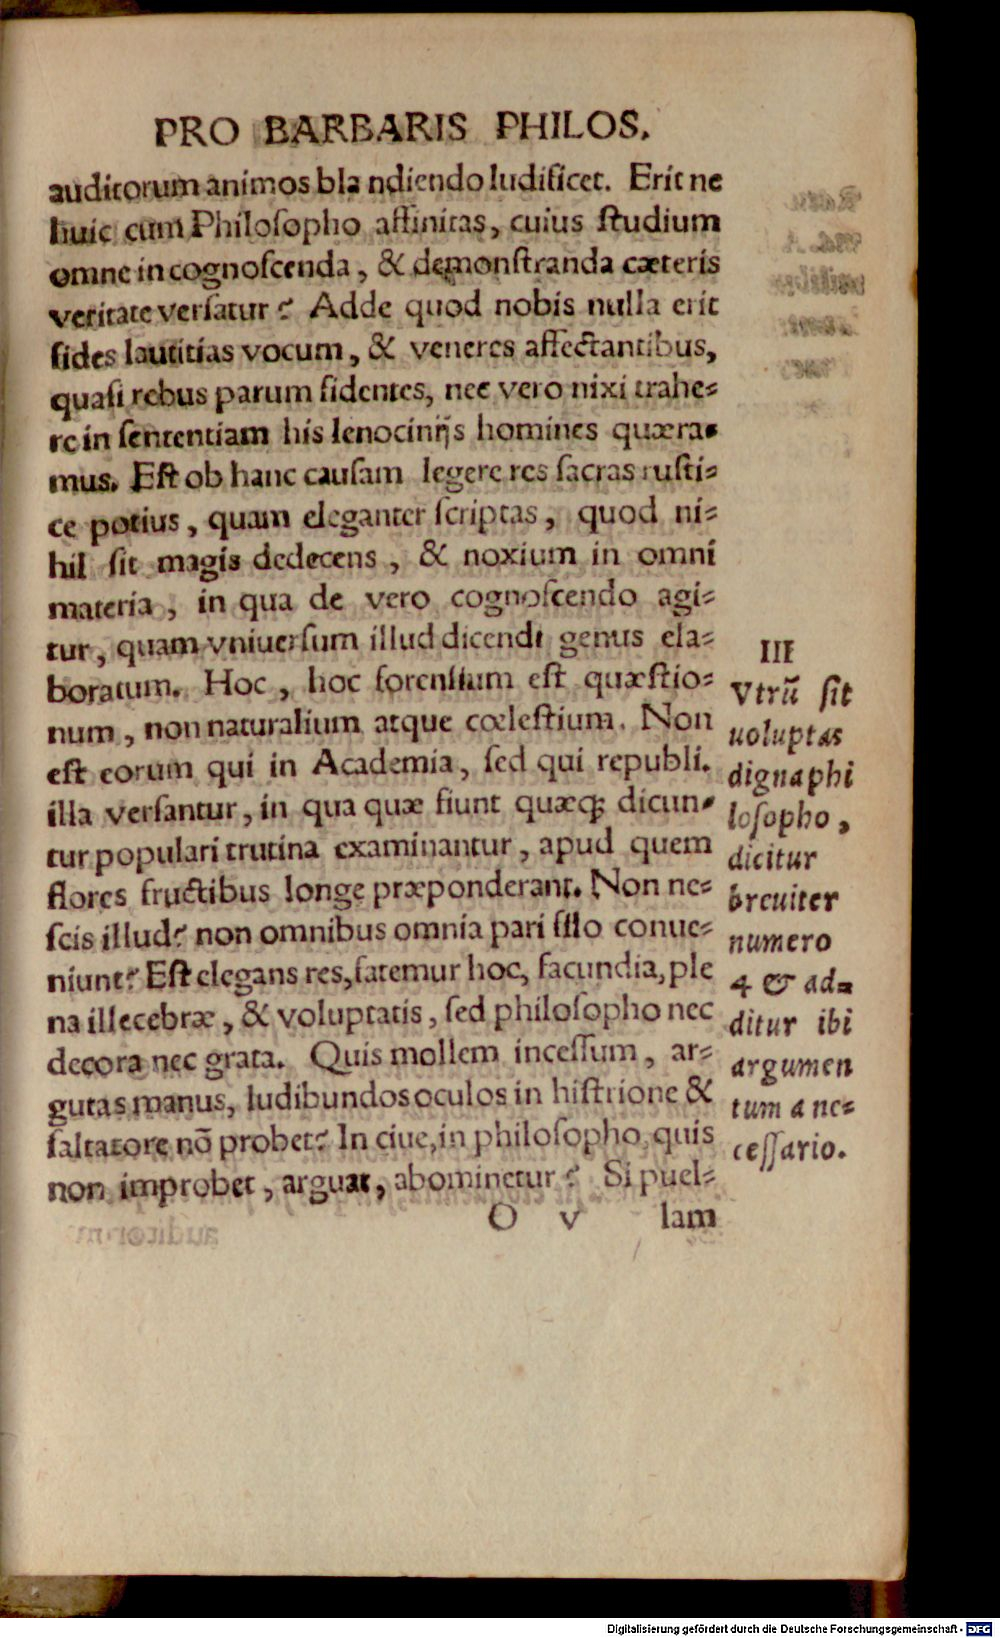 PRO BARBARIS PHILOS.
auditorum animos bla ndiendo ludificet. Erit ne
huic cum Philosopho affinitas, cuius studium
omne in cognoscenda, & demonstranda cæteris
veritate versatur? Adde quod nobis nulla erit
fides lautitias vocum, & veneres affectantibus,
quasi rebus parum fidentes, nec vero nixi trahe=
re in sententiam his lenocinijs homines quæra=
mus. Est ob hanc causam legere res sacras rusti=
ce potius, quam eleganter scriptas, quod ni=
hil sit magis dedecens, & noxium in omni
materia, in qua de vero cognoscendo agi=
tur, quam vniuersum illud dicendi genus ela=
boratum. Hoc, hoc forensium est quæstio=
num, non naturalium atque cœlestium. Non
est eorum qui in Academia, sed qui republi.
illa versantur, in qua quæ fiunt quæq; dicun=
tur populari trutina examinantur, apud quem
flores fructibus longe præponderant. Non ne=
scis illud? non omnibus omnia pari filo conue=
niunt? Est elegans res, fatemur hoc, facundia, ple
na illecebræ, & voluptatis, sed philosopho nec
decora nec grata. Quis mollem incessum, ar=
gutas manus, ludibundos oculos in histrione &
saltatore nõ probet? In ciue, in philosopho quis
non improbet, arguat, abominetur? Si puel=
O v lam
III
Vtrũ sit
uoluptas
digna phi
losopho,
dicitur
breuiter
numero
4 & ad=
ditur ibi
argumen
tum a ne=
cessario.
Digitalisierung gefördert durch die Deutsche Forschungsgemeinschaft - DFG